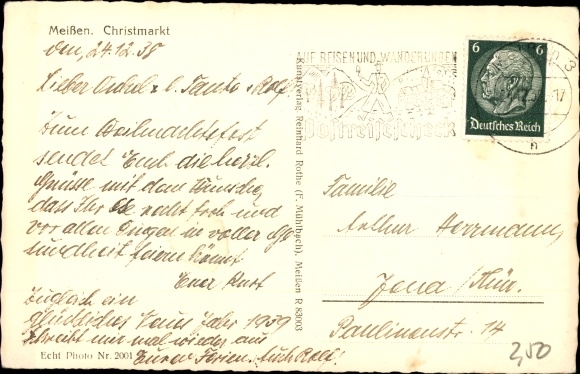 Meißen. Christmarkt
den, 24.12.38
Lieber Onkel u. l. Tante u. Rolf!
Zum Weihnachtsfest
sendet Euch die herzl.
Grüße mit dem Wunsche,
dass Ihr es recht froh und
vor allen Dingen in voller Ge-
sundheit feiern könnt
Euer Kurt
Zugleich ein
glückliches Neues Jahr 1939
Schreibt mir mal wieder aus
Euren Ferien. Auch Rolf!
Echt Photo Nr. 2001
Kunstverlag Reinhard Rothe (F. Mühlbach), Meißen R 83003
AUF REISEN UND WANDERUNGEN
Postreisescheck
6 6
Deutsches Reich
Familie
Arthur Herrmann,
Jena/Thür.
Paulinenstr. 14
2,50